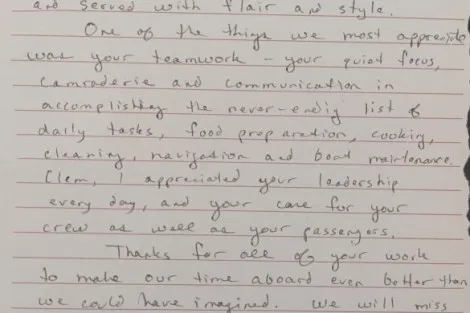 and served with flair and style.
One of the things we most appreciate
was your teamwork - your quiet focus,
camraderie and communication in
accomplishing the never-ending list of
daily tasks, food preparation, cooking,
cleaning, navigation and boat maintenance.
Clem, I appreciated your leadership
every day, and your care for your
crew as well as your passengers.
Thanks for all of your work
to make our time aboard even better than
we could have imagined. We will miss